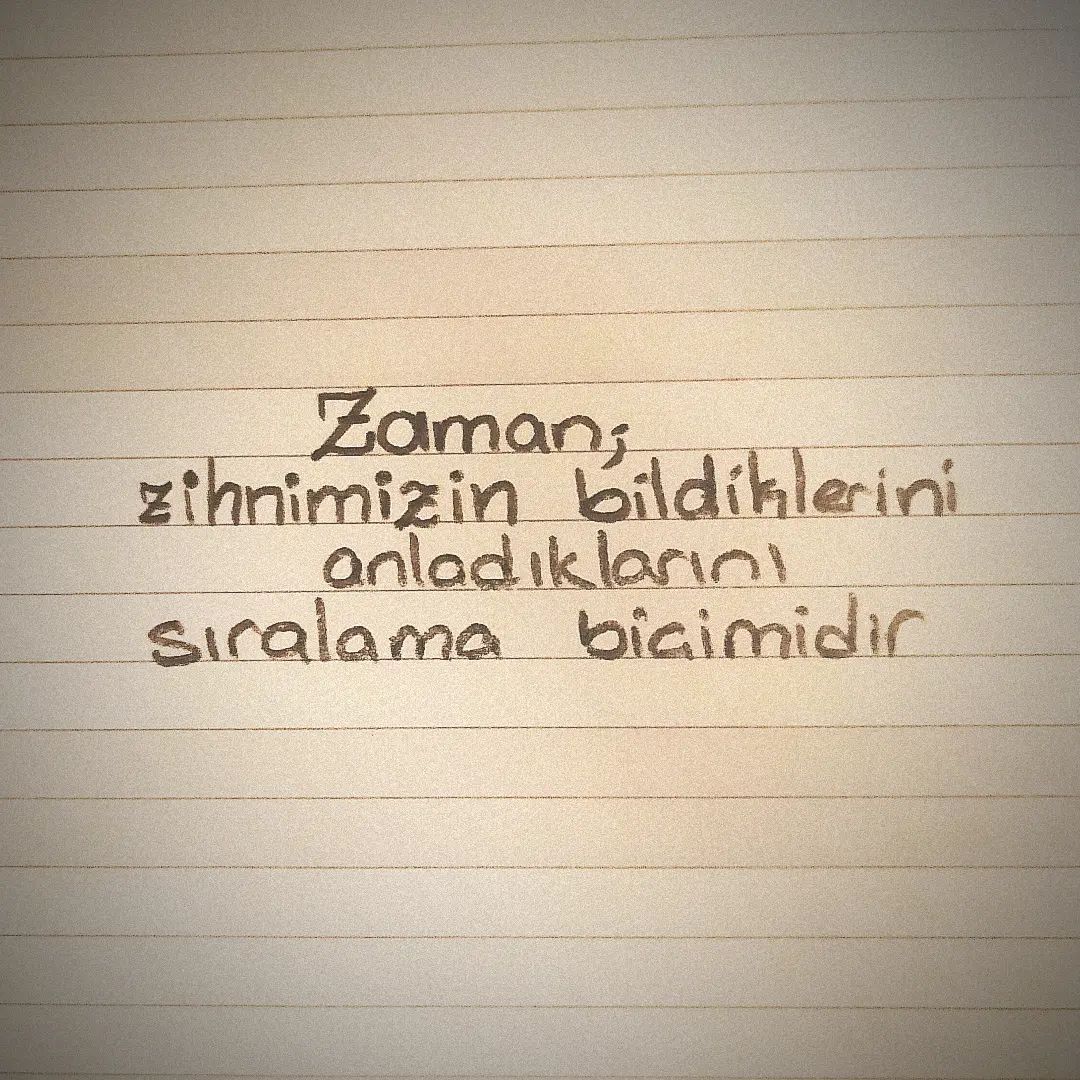 Zaman;
zihnimizin bildiklerini
anladıklarını
sıralama biçimidir